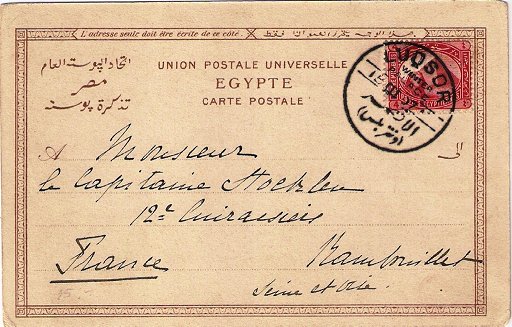 L'adresse seule doit être écrite de ce côté.
UNION POSTALE UNIVERSELLE
اتحاد البوستة العام
EGYPTE
مصر
CARTE POSTALE
تذكرة بوستة
LUQSOR
Winter
الأقصر
A
الى
Monsieur
le Capitaine Stoecklen
12e Cuirassiers
France
Rambouillet
Seine et Oise